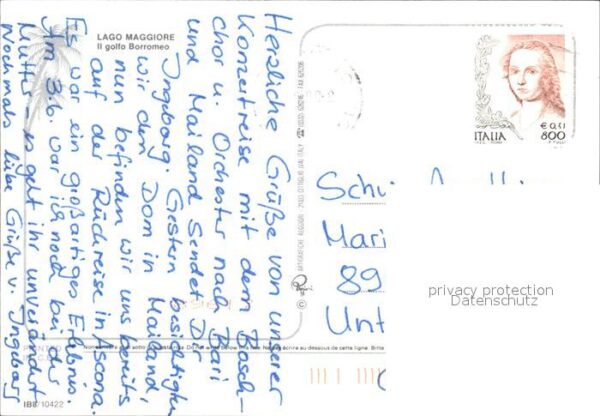 LAGO MAGGIORE
Il golfo Borromeo
Herzliche Grüße von unserer
Konzertreise mit dem Bosch-
chor u. Orchester nach Bari
und Mailand sendet Dir
Ingeborg. Gestern besichtigten
wir den Dom in Mailand,
nun befinden wir uns bereits
auf der Rückreise in Ascona.
Es war ein großartiges Erlebnis.
Am 3.6. war ich noch bei der
Mutter - es geht ihr unverändert
Nochmals liebe Grüße v. Ingeborg
ITALIA
€ 0,41
800
Mari
89
Unt
privacy protection
Datenschutz
IBB/10422